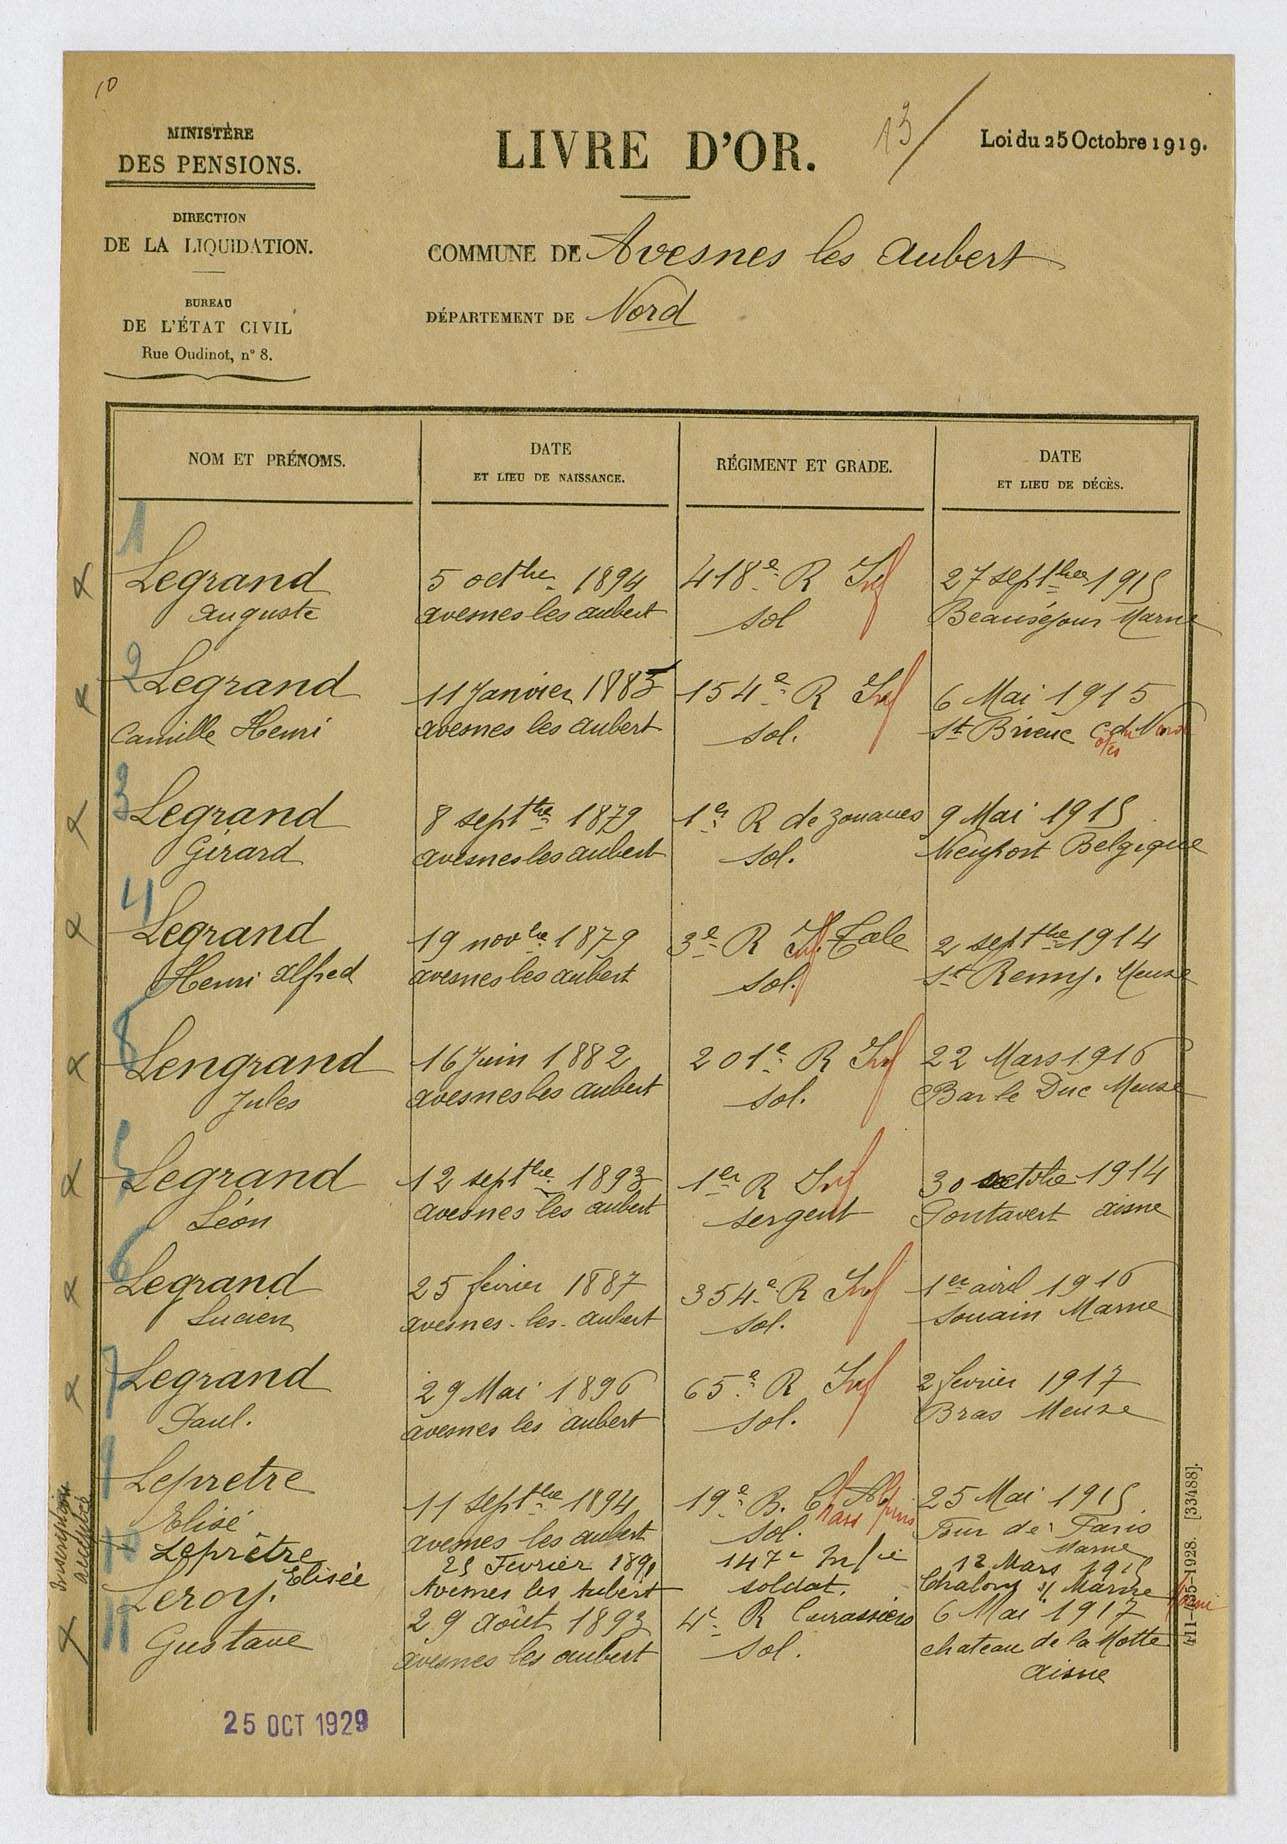 10
13
MINISTÈRE
DES PENSIONS.
DIRECTION
DE LA LIQUIDATION.
BUREAU
DE L'ÉTAT CIVIL
Rue Oudinot, n° 8.
LIVRE D'OR.
Loi du 25 Octobre 1919.
COMMUNE DE Avesnes les Aubert
DÉPARTEMENT DE Nord
NOM ET PRÉNOMS.
DATE
ET LIEU DE NAISSANCE.
RÉGIMENT ET GRADE.
DATE
ET LIEU DE DÉCÈS.
1
Legrand 5 octbre 1894 418e R Inf 27 septbre 1915
Auguste avesnes les aubert sol Beauséjour Marne
2
Legrand 11 Janvier 1885 154e R Inf 6 Mai 1915
Camille Henri avesnes les aubert sol. St Brieuc C du Nord
3
Legrand 8 septbre 1879 1er R de zouaves 9 Mai 1915
Girard avesnes les aubert sol. Nieuport Belgique
4
Legrand 19 novbre 1879 3e R Inf. Cale 2 septbre 1914
Henri Alfred avesnes les aubert sol. St Remy. Meuse
8
Lengrand 16 Juin 1882 201e R Inf 22 Mars 1916
Jules avesnes les aubert sol. Bar le Duc Meuse
5
Legrand 12 septbre 1893 1er R Inf 30 octobre 1914
Léon avesnes les aubert sergent Pontavert aisne
6
Legrand 25 février 1887 354e R Inf 1er avril 1916
Lucien avesnes-les-aubert sol. Souain Marne
7
Legrand 29 Mai 1896 65e R Inf 2 février 1917
Paul. avesnes les aubert sol. Bras Meuse
Lepretre 11 septbre 1894 19e B. Ch 25 Mai 1915
Elisé avesnes les aubert sol. Four de Paris
Marne
10
Leprêtre Elisée 25 Février 1891 147e Inf ie 12 Mars 1915
Avesnes les Aubert soldat. Chalons s/ Marne
11
Leroy. 29 août 1893 4e R Cuirassiers 6 Mai 1917
Gustave avesnes les aubert sol. chateau de la Motte
aisne
Inscription
25 OCT 1929
411-1928. [33488].